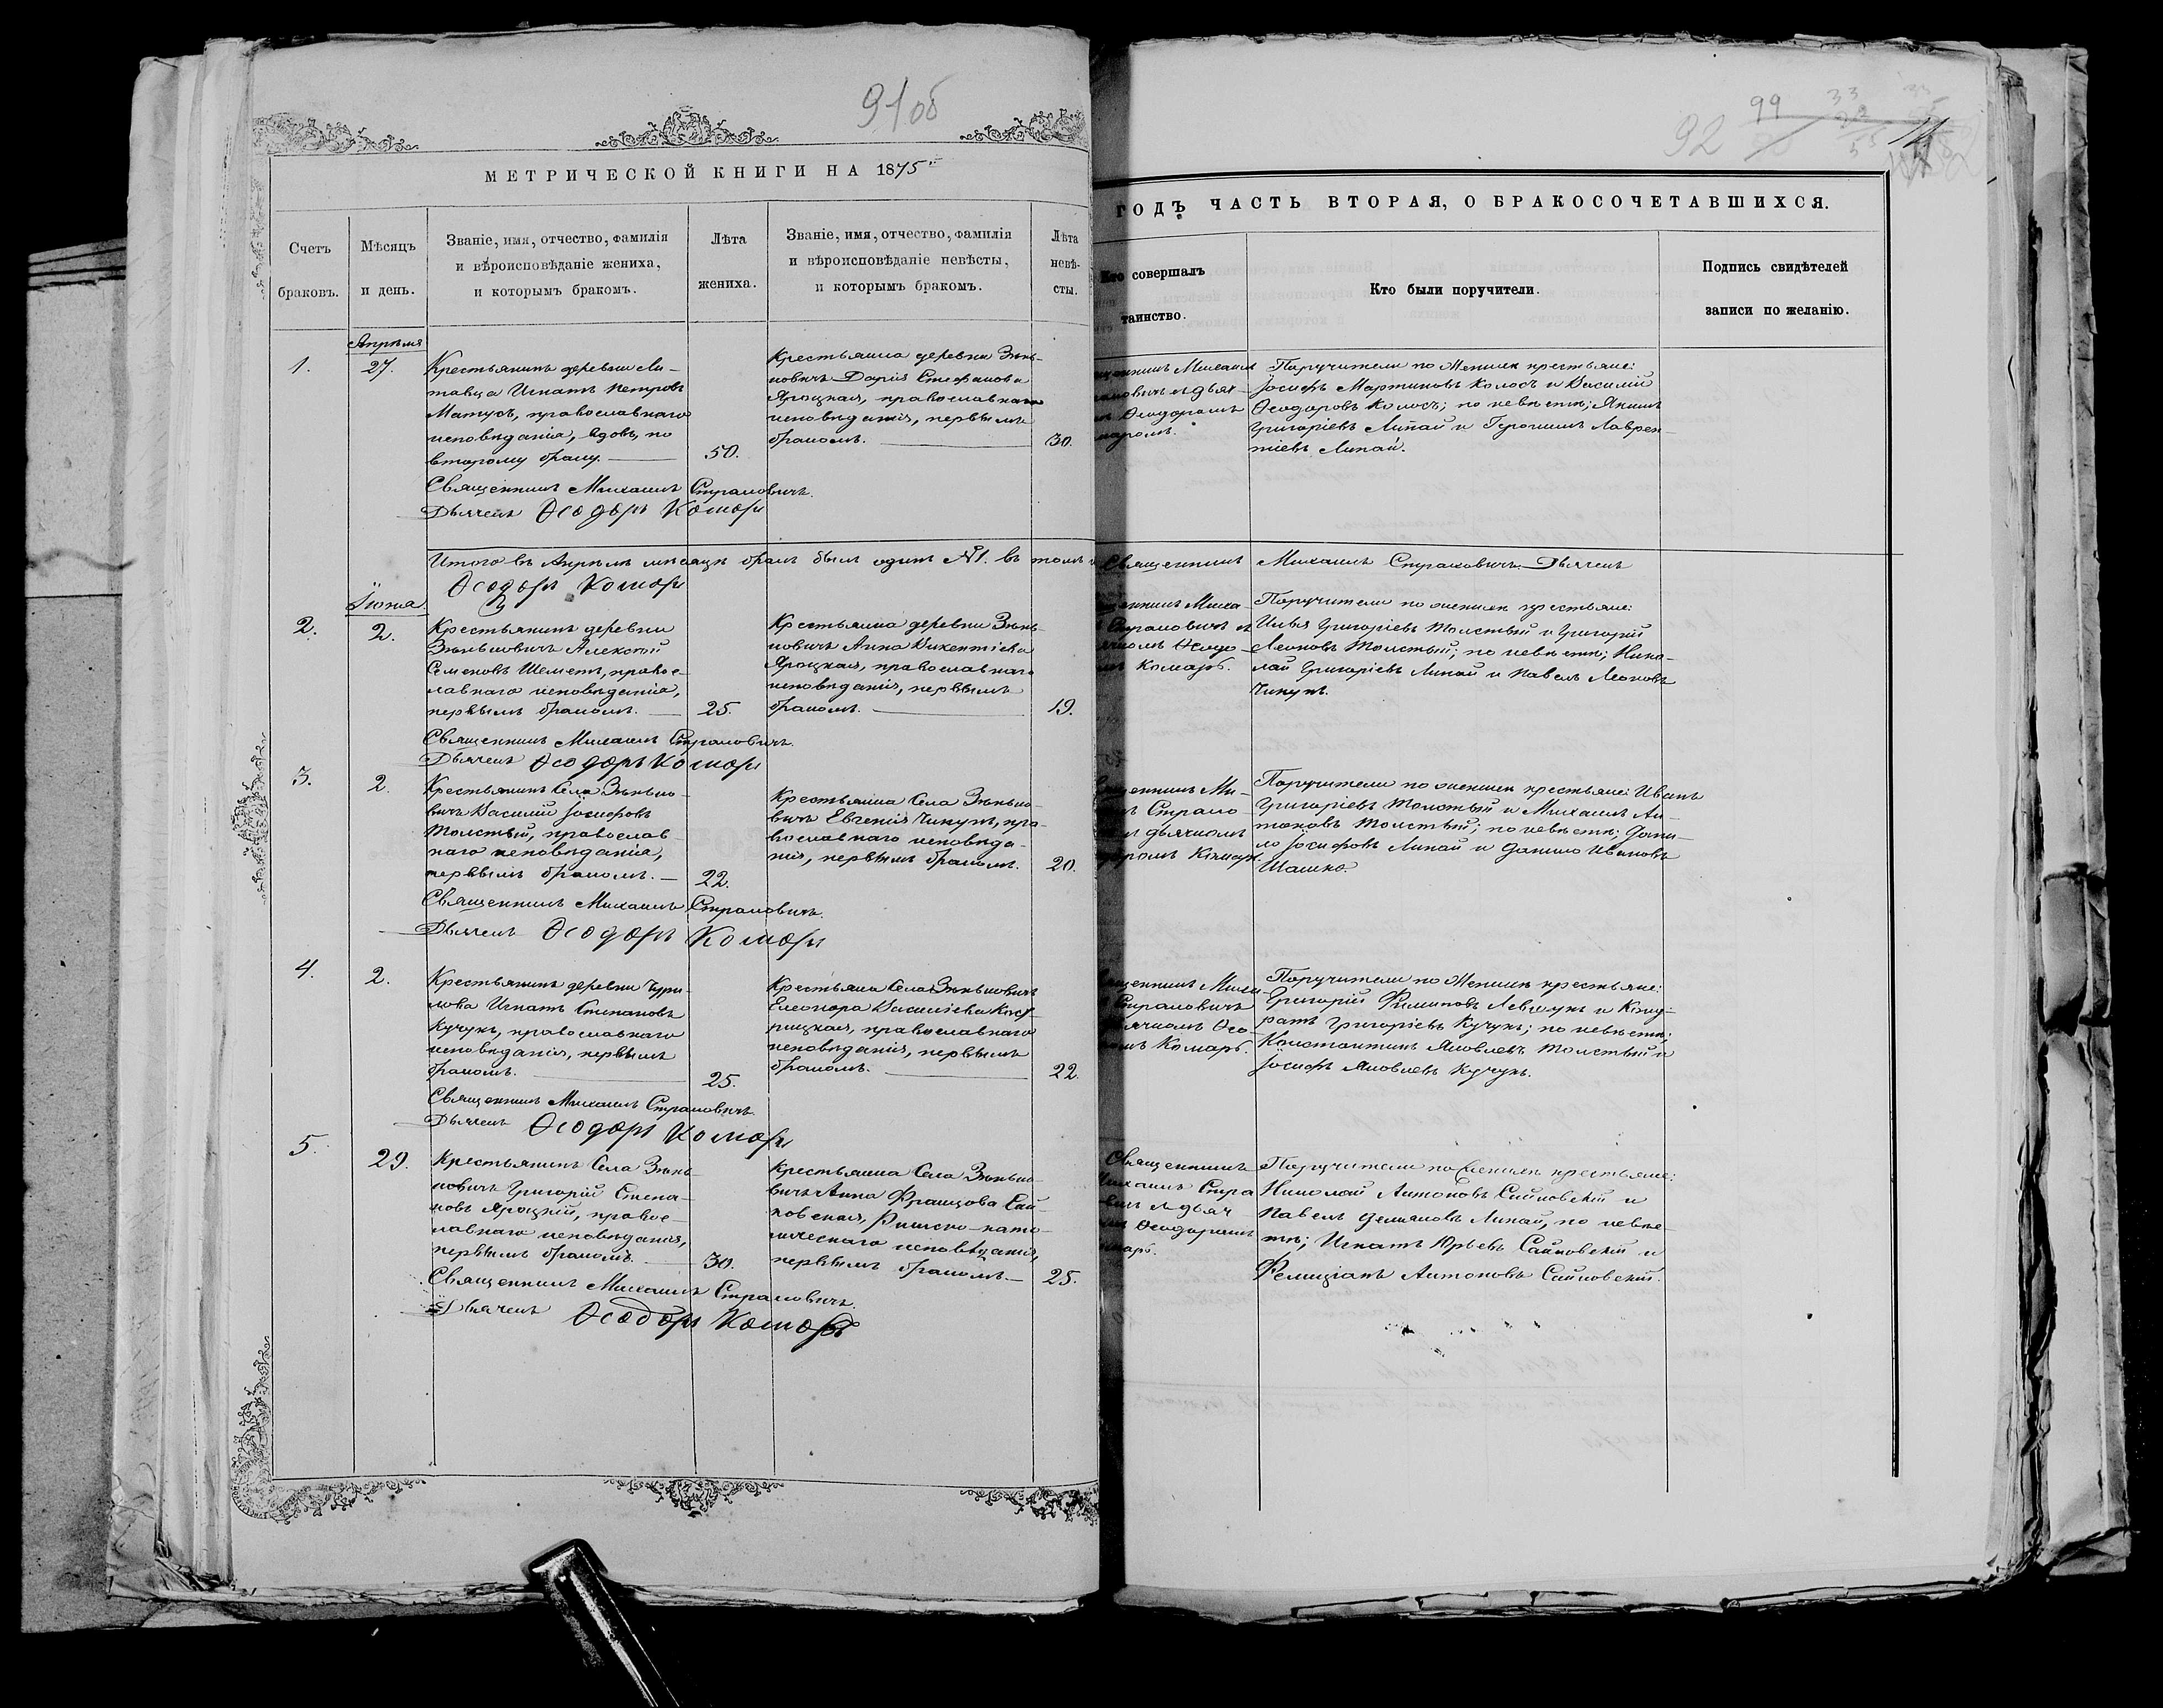 91об
МЕТРИЧЕСКОЙ КНИГИ НА 1875
Счетъ браковъ.
Мѣсяцъ и день.
Званіе, имя, отчество, фамилія
и вѣроисповѣданіе жениха,
и которымъ бракомъ.
Лѣта
жениха.
Званіе, имя, отчество, фамилія
и вѣроисповѣданіе невѣсты,
и которымъ бракомъ.
Лѣта
невѣ-
сты.
Апрѣля
1.
27.
Крестьянинъ деревни Ли-
тавца Игнатъ Петровъ
Матусъ, православнаго
исповѣданія, вдовъ, по
второму браку.
50.
Крестьянка деревни Зѣнь-
ковичъ Дарія Стефанова
Яроцкая, православнаго
исповѣданія, первымъ
бракомъ.
30.
Священникъ Михаилъ Страковичъ.
Дьячекъ Ѳеодоръ Комаръ
Итого въ Апрѣлѣ мѣсяцѣ бракъ былъ одинъ №1. въ томъ
Ѳеодоръ Комаръ
Іюня
2.
2.
Крестьянинъ деревни
Зѣньковичъ Алексѣй
Семеновъ Шеметъ, правос-
лавнаго исповѣданія,
первымъ бракомъ.
25.
Крестьянка деревни Зѣнь-
ковичъ Анна Викентіева
Яроцкая, православнаго
исповѣданія, первымъ
бракомъ.
19.
Священникъ Михаилъ Страковичъ.
Дьячекъ Ѳеодоръ Комаръ
3.
2.
Крестьянинъ Села Зѣнько-
вичъ Василій Іосифовъ
Толстый, православ-
наго исповѣданія,
первымъ бракомъ.
22.
Крестьянка Села Зѣнько-
вичъ Евгенія Чикунъ, пра-
вославнаго исповѣда-
нія, первымъ бракомъ.
20.
Священникъ Михаилъ Страковичъ.
Дьячекъ Ѳеодоръ Комаръ
4.
2.
Крестьянинъ деревни Чури-
лова Игнатъ Степановъ
Кучукъ, православнаго
исповѣданія, первымъ
бракомъ.
25.
Крестьяка Села Зѣньковичъ
Елеонора Василіева
православнаго
исповѣданія, первымъ
бракомъ.
22.
Священникъ Михаилъ Страковичъ.
Дьячекъ Ѳеодоръ Комаръ
5.
29.
Крестьянинъ Села Зѣнь-
ковичъ Григорій Степа-
новъ Яроцкій, правос-
лавнаго исповѣданія,
первымъ бракомъ.
30.
Крестьянка Села Зѣнько-
вичъ Анна Францова Сай-
ковская, Римско-като-
лическаго исповѣданія,
первымъ бракомъ.
25.
Священникъ Михаилъ Страковичъ.
Дьячекъ Ѳеодоръ Комаръ
92
99
ГОДЪ ЧАСТЬ ВТОРАЯ, О БРАКОСОЧЕТАВШИХСЯ.
Кто совершалъ
таинство.
Кто были поручители.
Подпись свидѣтелей
записи по желанію.
Поручители по женихѣ крестьяне:
Іосифъ Мартиновъ Колосъ и Василій
Ѳеодоровъ Колосъ; по невѣстѣ; Якимъ
Григоріевъ Липай и Геронимъ Лаврен-
тіевъ Липай.
Священникъ Михаилъ Страковичъ. Дьячекъ
Поручители по женихѣ крестьяне:
Илья Григоріевъ Толстый и Григорій
Леоновъ Толстый; по невѣстѣ; Нико-
лай Григоріевъ Липай и Павелъ Леоновъ
Чикунъ.
Поручители по женихѣ крестьяне: Иванъ
Григоріевъ Толстый и Михаилъ Ан-
тоновъ Толстый; по невѣстѣ; Дани-
ло Іосифовъ Липай и Данило Ивановъ
Шашко.
Поручители по женихѣ крестьяне:
Григорій Филиповъ Левчукъ и Конд-
ратъ Григоріевъ Кучукъ; по невѣстѣ;
Константинъ Яковлевъ Толстый и
Іосифъ Яковлевъ Кучукъ.
Священникъ
Поручители по женихѣ крестьяне:
Николай Антоновъ Сайковскій и
Павелъ Демяновъ Липай, по невѣс-
тѣ; Игнатъ Юрьевъ Сайковскій и
Фелиціанъ Антоновъ Сайковскій.